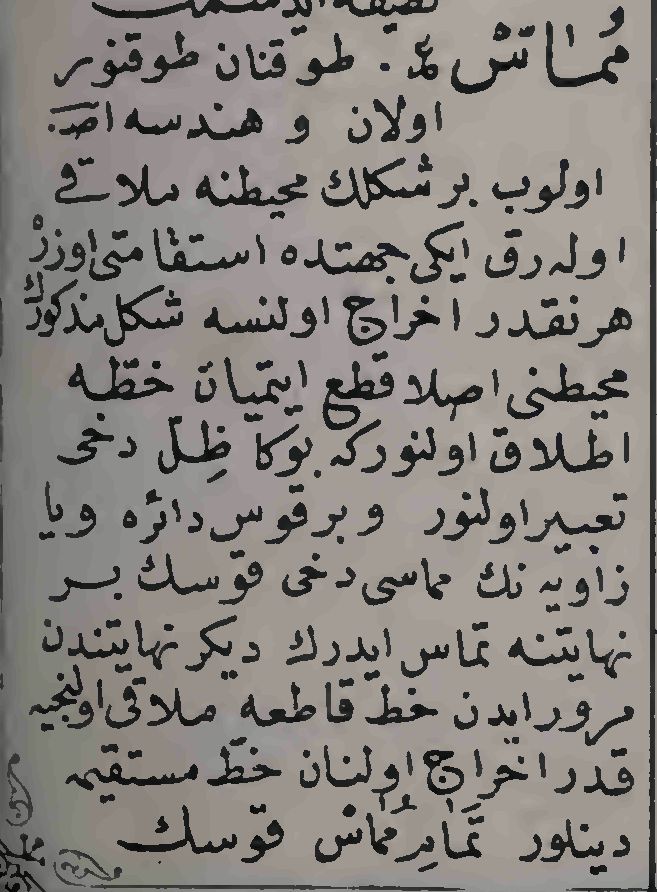 مُماسّ ع . طوقنان طوقنور
اولان و هندسه اصـ
اولوب بر شكلك محيطنه ملاقی
اوله‌رق ايكی جهتده استقامتی اوزره
هر نقدر اخراج اولنسه شكل مذكورك
محيطنی اصلا قطع ايتميان خطّه
اطلاق اولنور كه بوكا ظِلّ دخی
تعبير اولنور و بر قوس دائره و يا
زاويه نك مماسی دخی قوسك بر
نهايتنه تماس ايدرك ديكر نهايتندن
مرور ايدن خطّ قاطعه ملاقی اولنجيه
قدر اخراج اولنان خطّ مستقيمه
دينلور تَمامِ مُماسّ قوسك